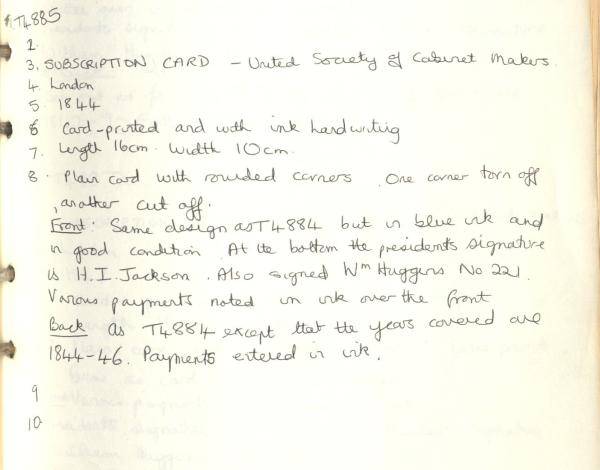 1. T4885
2.
3. SUBSCRIPTION CARD – United Society of Cabinet Makers.
4. London
5. 1844
6 Card-printed and with ink handwriting
7. Length 16cm. Width 10cm.
8. Plain card with rounded corners. One corner torn off
, another cut off.
Front: Same design as T4884 but in blue ink and
in good condition. At the bottom the president's signature
is H.I. Jackson. Also signed Wm Huggins No 221.
Various payments noted in ink over the front
Back As T4884 except that the years covered are
1844-46. Payments entered in ink.
9
10